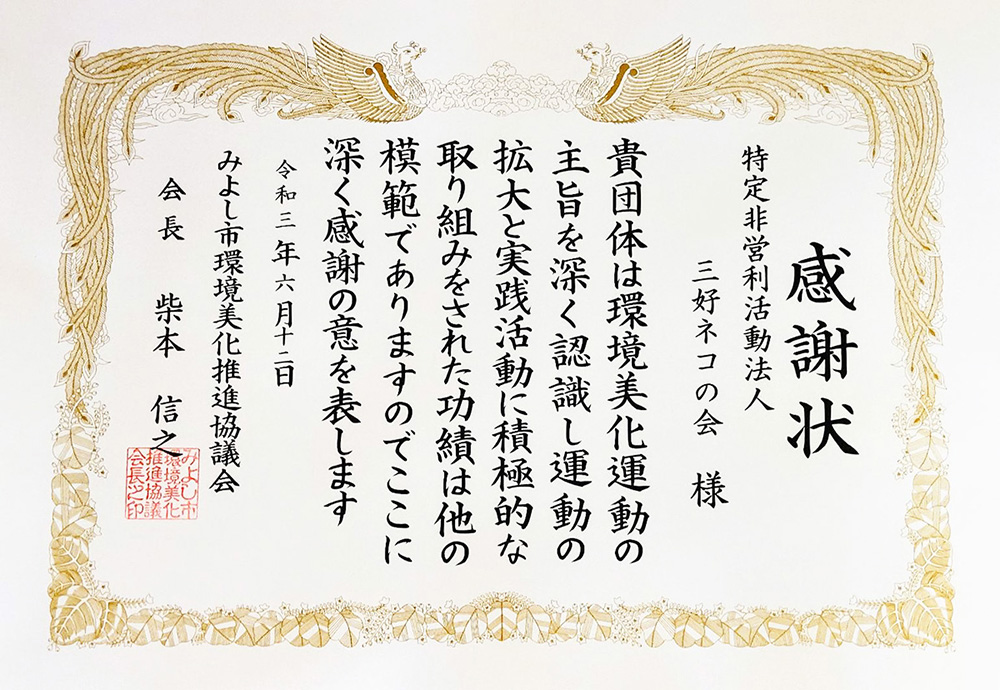 感謝状
特定非営利活動法人
三好ネコの会 様
貴団体は環境美化運動の
主旨を深く認識し運動の
拡大と実践活動に積極的な
取り組みをされた功績は他の
模範でありますのでここに
深く感謝の意を表します
令和三年六月十二日
みよし市環境美化推進協議会
会長 柴本 信之
みよし市
環境美化
推進協議
会長之印